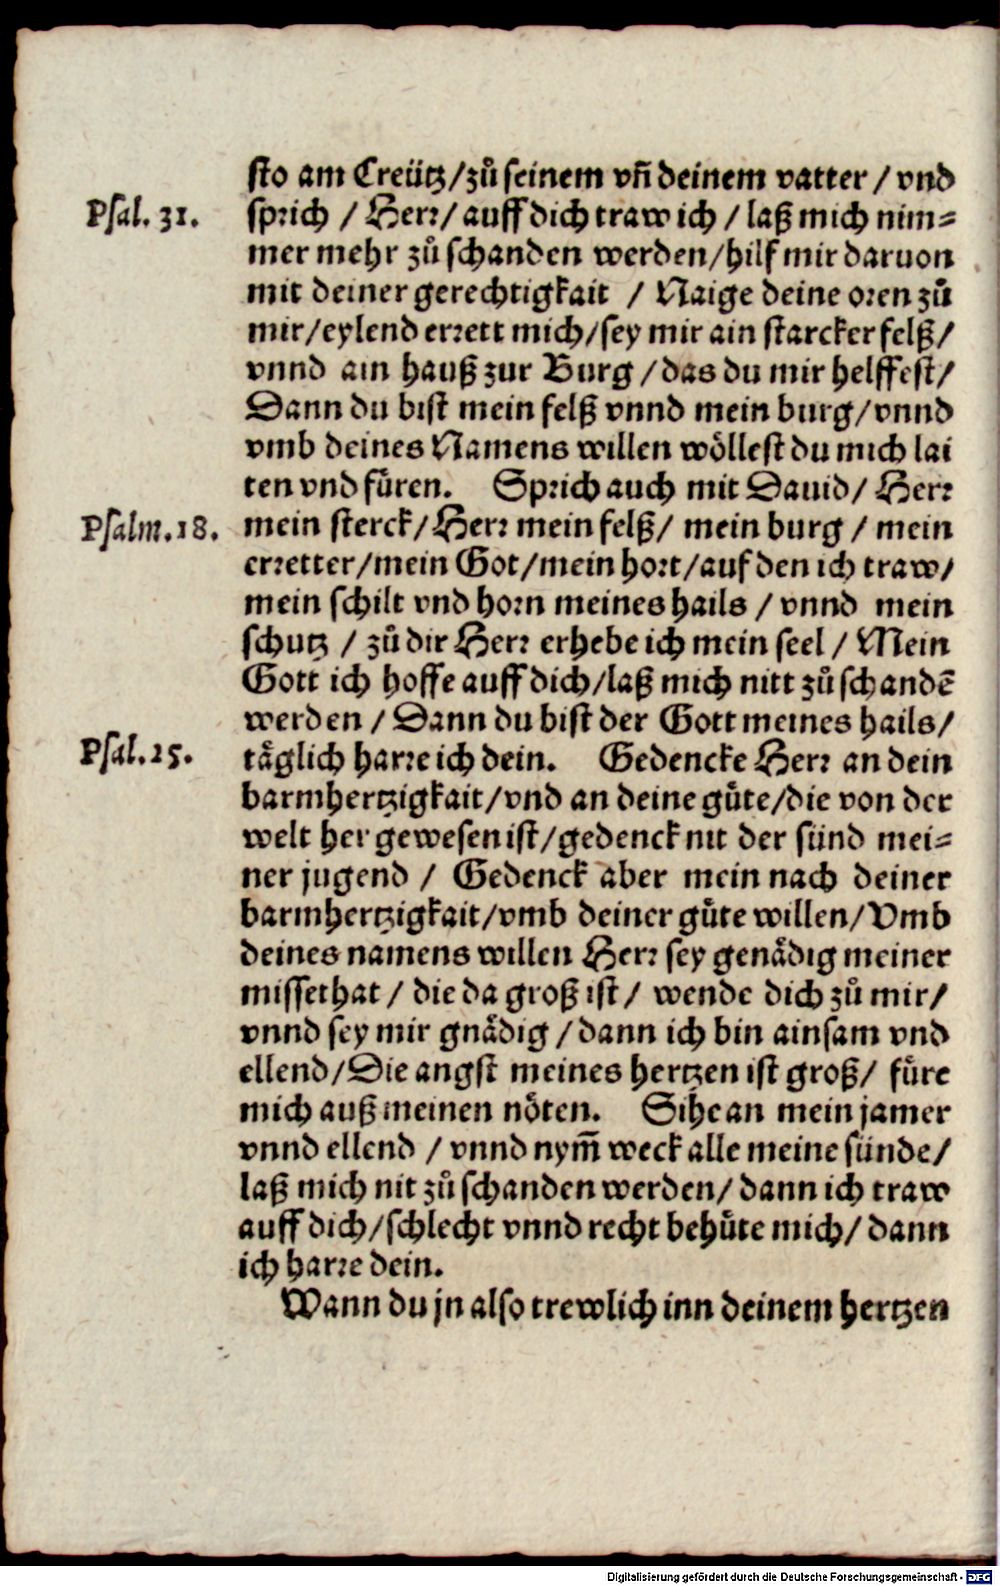 sto am Creütz/zů seinem vñ deinem vatter / vnd
Psal. 31. sprich / Herr/ auff dich traw ich / laß mich nim=
mer mehr zů schanden werden/hilf mir daruon
mit deiner gerechtigkait / Naige deine oren zů
mir/eylend errett mich/sey mir ain starcker felß/
vnnd ain hauß zur Burg /das du mir helffest/
Dann du bist mein felß vnnd mein burg/vnnd
vmb deines Namens willen wöllest du mich lai
ten vnd fůren. Sprich auch mit Dauid/ Herr
Psalm. 18. mein sterck/Herr mein felß/ mein burg / mein
erretter/mein Got/mein hort/auf den ich traw/
mein schilt vnd horn meines hails / vnnd mein
schutz / zů dir Herr erhebe ich mein seel / Mein
Gott ich hoffe auff dich/laß mich nitt zů schandē
werden / Dann du bist der Gott meines hails/
Psal. 25. täglich harre ich dein. Gedencke Herr an dein
barmhertzigkait/vnd an deine gůte/die von der
welt her gewesen ist/gedenck nit der sünd mei=
ner jugend / Gedenck aber mein nach deiner
barmhertzigkait/vmb deiner gůte willen/Vmb
deines namens willen Herr sey genädig meiner
missethat / die da groß ist/ wende dich zů mir/
vnnd sey mir gnädig /dann ich bin ainsam vnd
ellend/Die angst meines hertzen ist groß/ fůre
mich auß meinen nöten. Sihe an mein jamer
vnnd ellend / vnnd nym̄ weck alle meine sünde/
laß mich nit zů schanden werden/ dann ich traw
auff dich/schlecht vnnd recht behůte mich/ dann
ich harre dein.
Wann du jn also trewlich inn deinem hertzen
Digitalisierung gefördert durch die Deutsche Forschungsgemeinschaft - DFG